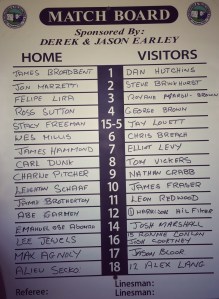 MATCH BOARD
Sponsored By:
DEREK & JASON EARLEY
HOME VISITORS
JAMES BROADBENT 1 DAN HUTCHINS
JON MAZZETTI 2 STEVE BROKHURST
FELIPE LIRA 3 BROWN
ROSS SUTTON 4 GEORGE BROWN
STACY FREEMAN 15-5 JAY LOVETT
WES MILLIS 6 CHRIS BREACH
JAMES HAMMOND 7 ELLIOT LEVY
CARL DUNK 8 TOM VICKERS
CHARLIE PITCHER 9 NATHAN CRABB
LEIGHTON SCHAAF 10 JAMES FRASER
JAMIE BROTHERTON 11 LEON REDWOOD
ABE GARMEN 12
EMMANUEL OSE 14 JOSH MARSHALL
LEE JEWELS 16 15 RONNIE CONLON
COURTNEY
MAX AGNOLY 17 JASON BLOOR
ALIEU SECKO 18 12 ALEX LANG
Referee: Linesman:
Linesman: